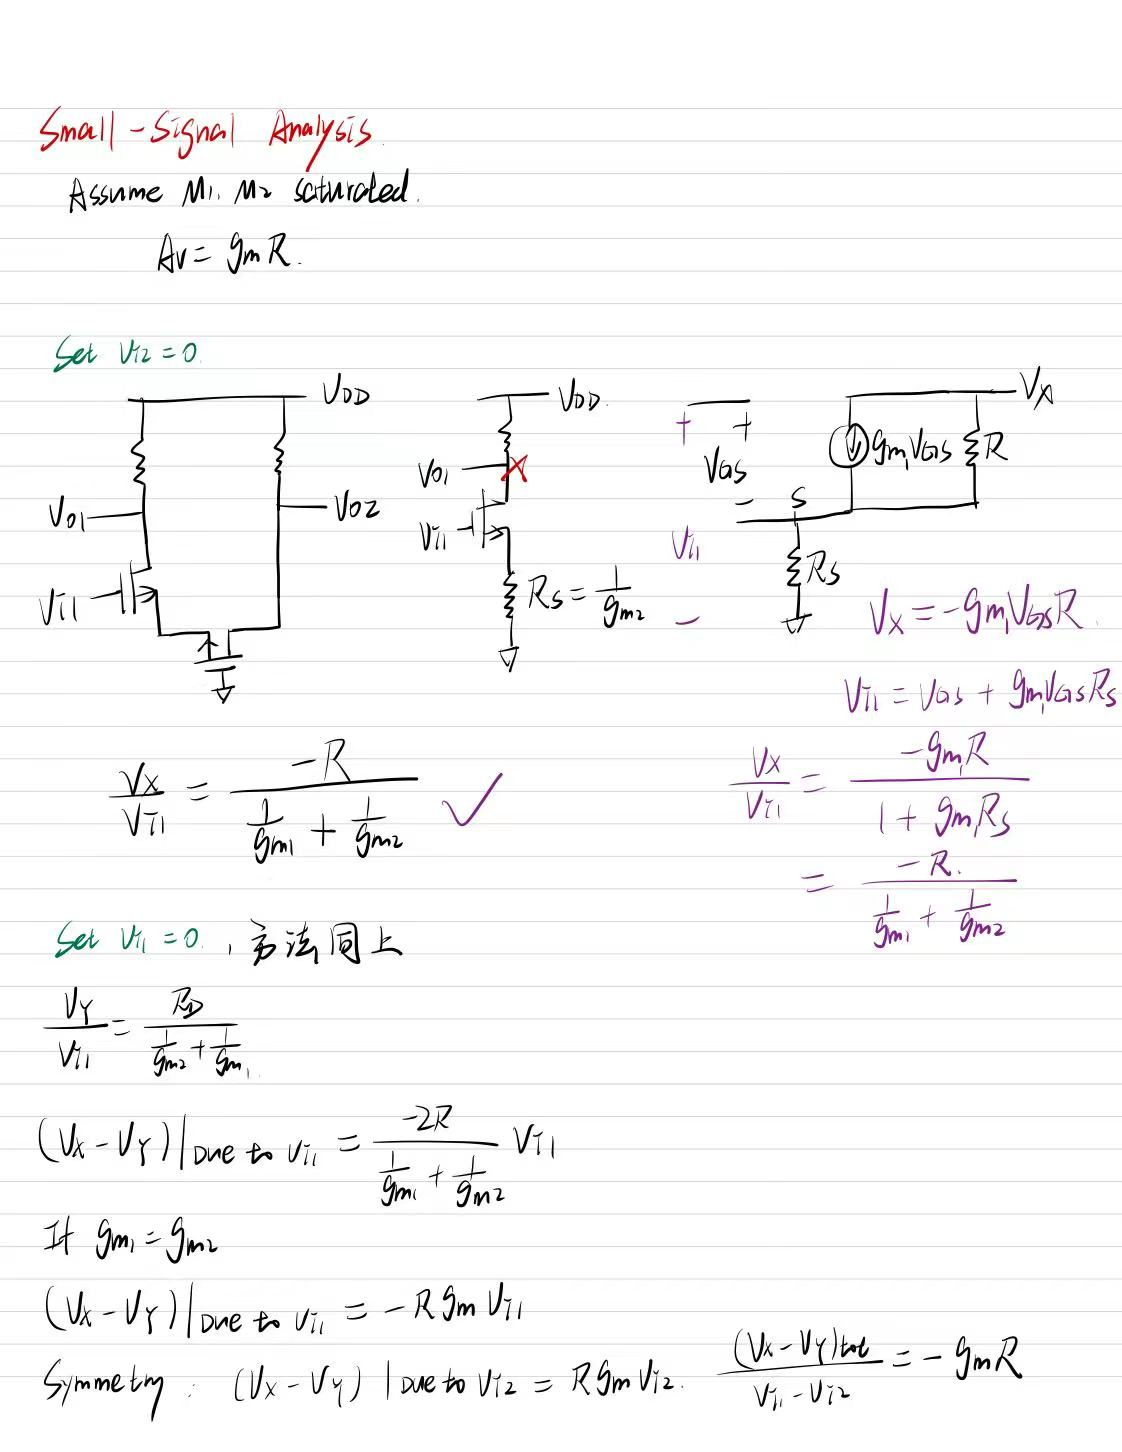 Small-Signal Analysis.
Assume M1. M2 saturated.
Av = gmR.
Set Vi2 = 0.
VDD
Vo1
Vo2
Vi1
VDD.
Vo1
Vi1
Rs = 1/gm2
+ +
VGS
-
Vi1
-
S
Rs
gm1VGS
R
VX
VX = -gm1VGSR.
Vi1 = VGS + gm1VGSRs
VX/Vi1 = -gm1R/(1 + gm1Rs)
= -R./(1/gm1 + 1/gm2)
VX/Vi1 = -R/(1/gm1 + 1/gm2) ✓
Set Vi1 = 0. , 方法同上
VY/Vi1 = RD/(1/gm2 + 1/gm1.)
(VX - VY)|Due to Vi1 = -2R/(1/gm1 + 1/gm2) Vi1
If gm1 = gm2
(VX - VY)|Due to Vi1 = -RgmVi1
Symmetry: (VX - VY)|Due to Vi2 = RgmVi2. (VX - VY)tot/(Vi1 - Vi2) = -gmR